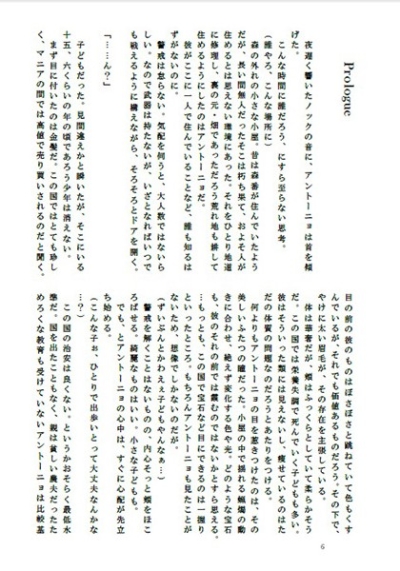 Prologue
　夜遅く響いたノックの音に、アントーニョは首を傾
げた。
　こんな時間に誰だろう、にすら至らない思考。
（誰やろ、こんな場所に）
　森の外れの小さな小屋。昔は森番が住んでいたよう
だが、長い間無人だったそこは朽ち果て、およそ人が
住めるとは思えない環境にあった。それをひとり地道
に修理し、裏の元・畑であっただろう荒れ地も耕して
住めるようにしたのはアントーニョだ。
　彼がここに一人で住んでいることなど、誰も知るは
ずがないのに。
　警戒は怠らない。気配を伺うと、大人数ではないら
しい。なので武器は持たないが、いざとなればいつで
も戦えるように構えながら、そろそろとドアを開く。
「……ん？」
　子どもだった。見間違えかと瞬いたが、そこにいる
十五、六くらいの年の頃であろう少年は消えない。
　まず目に付いたのは金髪だ。この国ではとても珍し
く、マニアの間では高値で売り買いされるのだと聞く。
目の前の彼のものはぼさぼさと跳ねていて色もくす
んでいるが、それでも価値あるものだろう。その下で、
やけに太い眉毛が、その存在を主張している。
　体は華奢だが、頬はふっくらとしていて柔らかそう
だ。この国では栄養失調で死んでいく子どもも多い。
彼はそういった類には見えないし、痩せているのはた
だの体質の問題なのだろうとあたりをつける。
　何よりもアントーニョの目を惹きつけたのは、その
美しいふたつの瞳だった。小屋の中で揺れる蝋燭の動
きに合わせ、絶えず変化する色や光。どのような宝石
も、彼のそれの前では霞むのではないかとすら思える。
…もっとも、この国で宝石など目にできるのは一握り
といったところ。もちろんアントーニョも見たことが
ないため、想像でしかないのだが。
（ずいぶんとかわええ子どもやんなぁ…）
　警戒を解くことはないものの、内心そっと頬をほこ
ろばせる。綺麗なものはいい。小さな子どもも。
　でも、とアントーニョの心中は、すぐに心配が先立
ち始める。
（こんな子ぉ、ひとりで出歩いとって大丈夫なんかな
…？）
　この国の治安は良くない。というかおそらく最低水
準だ。国を出たこともなく、親は貧しい農夫だったた
めろくな教育も受けていないアントーニョは比較基
6